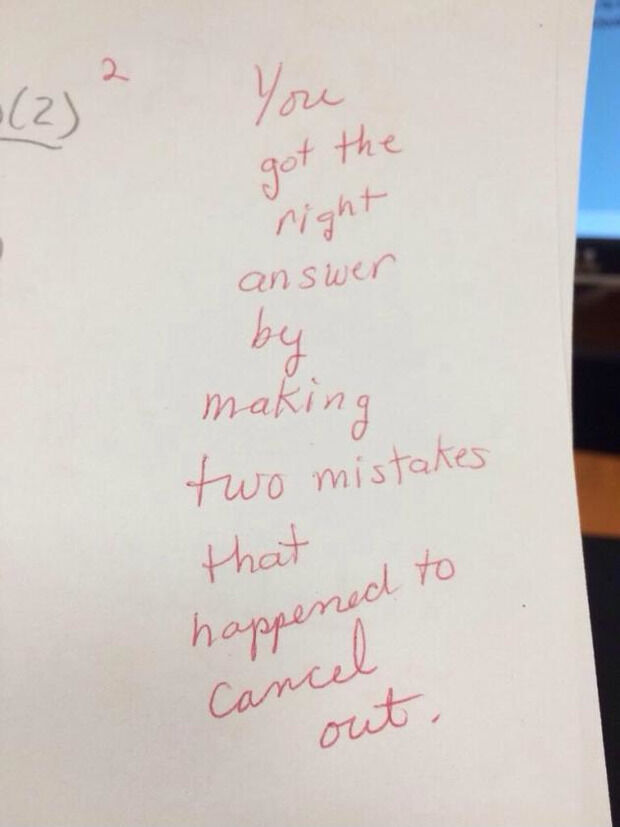 (2)²
You
got the
right
answer
by
making
two mistakes
that
happened to
cancel
out.